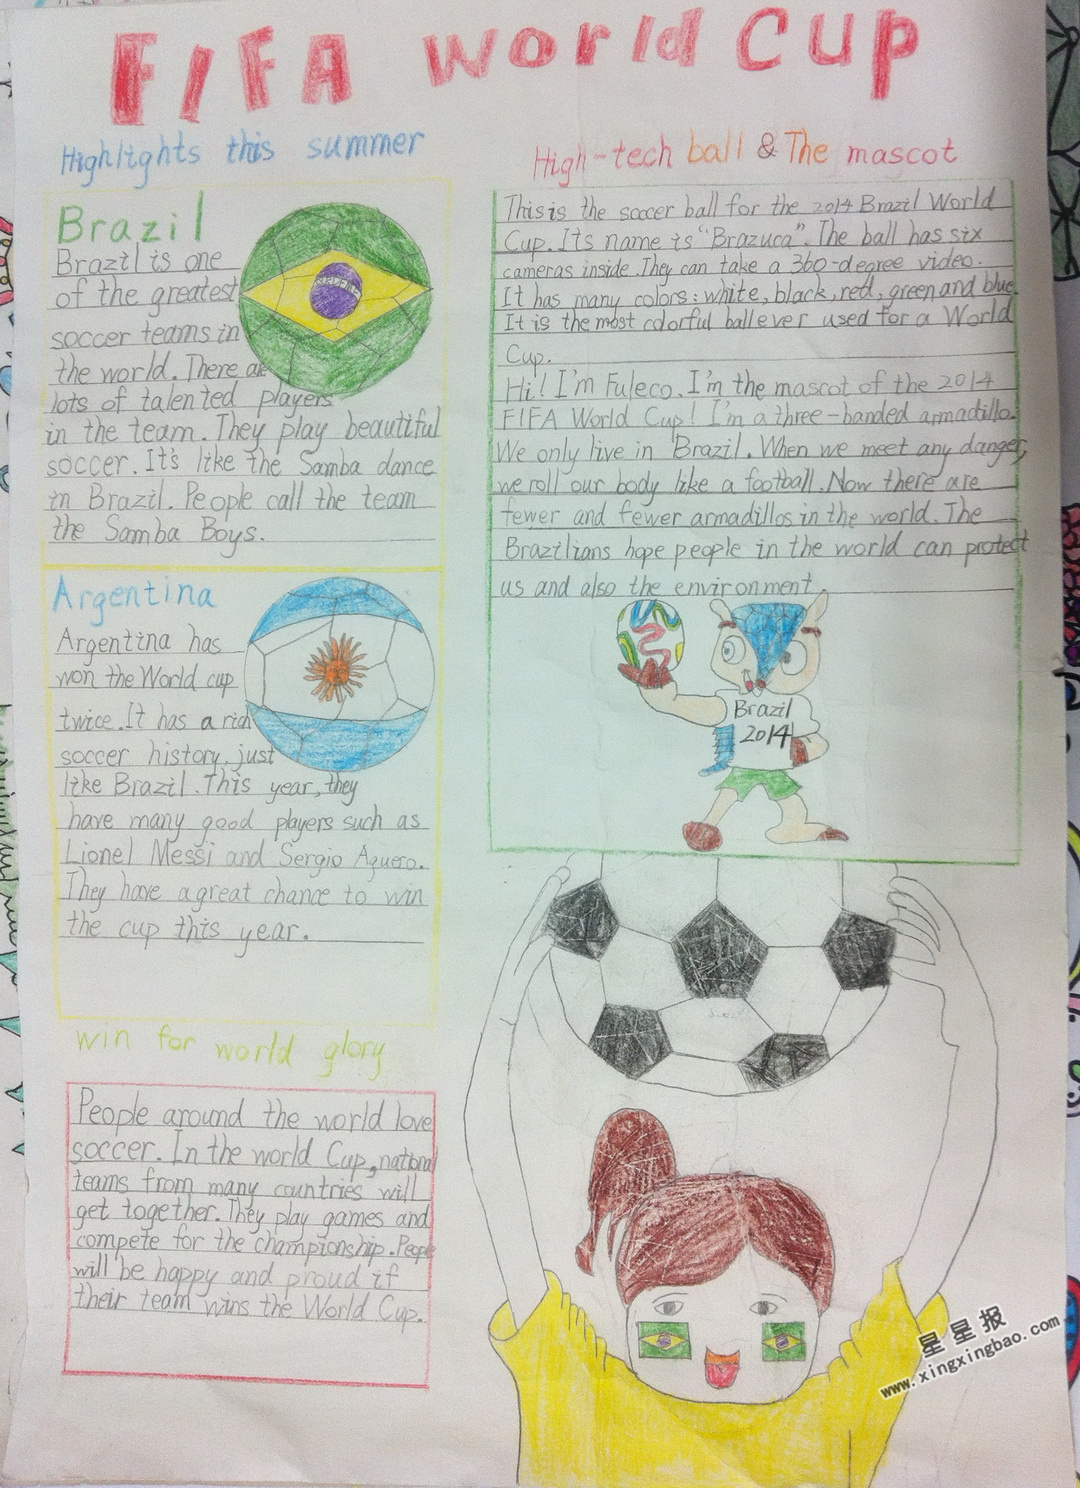 FIFA World Cup
Highlights this summer
Brazil
Brazil is one
of the greatest
soccer teams in
the world. There are
lots of talented players
in the team. They play beautiful
soccer. It's like the Samba dance
in Brazil. People call the team
the Samba Boys.
Argentina
Argentina has
won the World cup
twice. It has a rich
soccer history, just
like Brazil. This year, they
have many good players such as
Lionel Messi and Sergio Aguero.
They have a great chance to win
the cup this year.
win for world glory
People around the world love
soccer. In the world Cup, national
teams from many countries will
get together. They play games and
compete for the championship. People
will be happy and proud if
their team wins the World Cup.
High-tech ball & The mascot
This is the soccer ball for the 2014 Brazil World
Cup. Its name is "Brazuca". The ball has six
cameras inside. They can take a 360-degree video.
It has many colors: white, black, red, green and blue.
It is the most colorful ball ever used for a World
Cup.
Hi! I'm Fuleco. I'm the mascot of the 2014
FIFA World Cup! I'm a three-banded armadillo.
We only live in Brazil. When we meet any danger,
we roll our body like a football. Now there are
fewer and fewer armadillos in the world. The
Brazilians hope people in the world can protect
us and also the environment.
Brazil
2014
星星报
www.xingxingbao.com